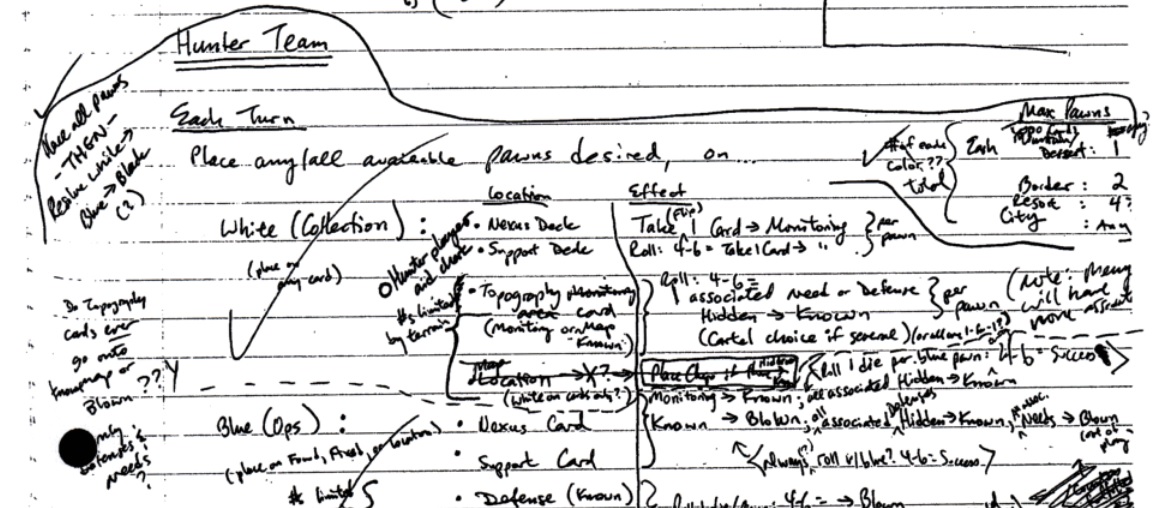 Hunter Team
Place all pawns
- THEN -
Resolve white →
Blue → Black
(?)
Each Turn
Place any/all available pawns desired, on...
Max Pawns
# of each
color??
total
Each
Mountain/
Dessert : 1
Border : 2
Resort : 4?
City : Any
Location
Effect
White (Collection) :
(place on
any card)
• Nexus Deck
• Support Deck
Take (Flip) 1 Card → Monitoring
Roll: 4-6 = Take 1 Card → "
} per
pawn
Hunter player
#s limited
by terrain
• Topography
area card
(Monitoring or Map
Known)
Roll: 4-6 =
associated need or Defense
Hidden → Known
(Cartel choice if several)
} per
pawn
(note: many
will have
none
Map
Location → X?
(white on cards only?)
Place Chip if
Roll 1 die per blue pawn: 4-6 = Success
Do Topography
cards ever
go onto
known map or
Blown ?? Y
only
Defenses &
needs
?
Blue (Ops) :
(place on Found, Fixed, or location)
• Nexus Card
• Support Card
• Defense (Known)
Monitoring → Known; all associated Hidden → Known
Known → Blown; all associated Defenses Hidden → Known, assoc. Needs → Blown
(out of
play)
<Always(?) roll w/blue? 4-6 = Success>
#s limited
4-6 = → Blown